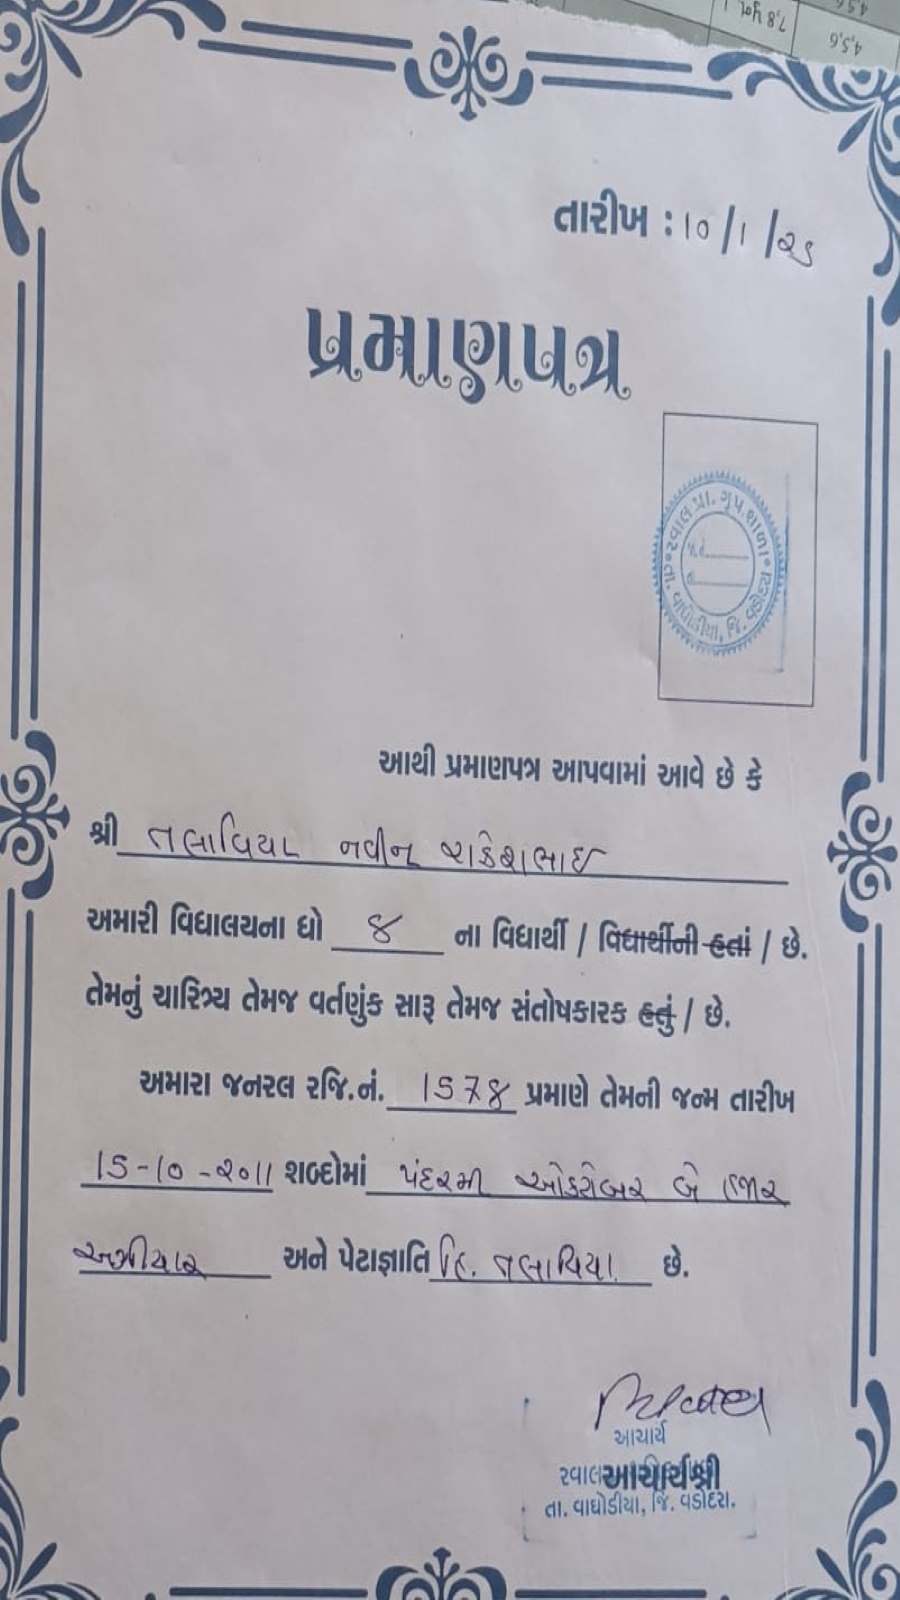 7,8 ગુજ.
4,5,6
4,5,6
તારીખ : ૧૦/૧/૨૩
પ્રમાણપત્ર
તા. • રવાલ પ્રા. ગૃપ શાળા •
જા.નં.
તા.
વાઘોડીયા, જિ. વડોદરા
આથી પ્રમાણપત્ર આપવામાં આવે છે કે
શ્રી તલાવિયા નવીન રાકેશભાઇ
અમારી વિદ્યાલયના ધો ૪ ના વિદ્યાર્થી / વિદ્યાર્થીની હતાં / છે.
તેમનું ચારિત્ર્ય તેમજ વર્તણુંક સારૂ તેમજ સંતોષકારક હતું / છે.
અમારા જનરલ રજિ.નં. ૧૬૭૪ પ્રમાણે તેમની જન્મ તારીખ
૧૫-૧૦-૨૦૧૧ શબ્દોમાં પંદરમી ઓક્ટોબર બે હજાર
અગીયાર અને પેટાજ્ઞાતિ હિ. તલાવિયા છે.
આચાર્ય
રવાલ આચાર્યશ્રી
તા. વાઘોડીયા, જિ. વડોદરા.